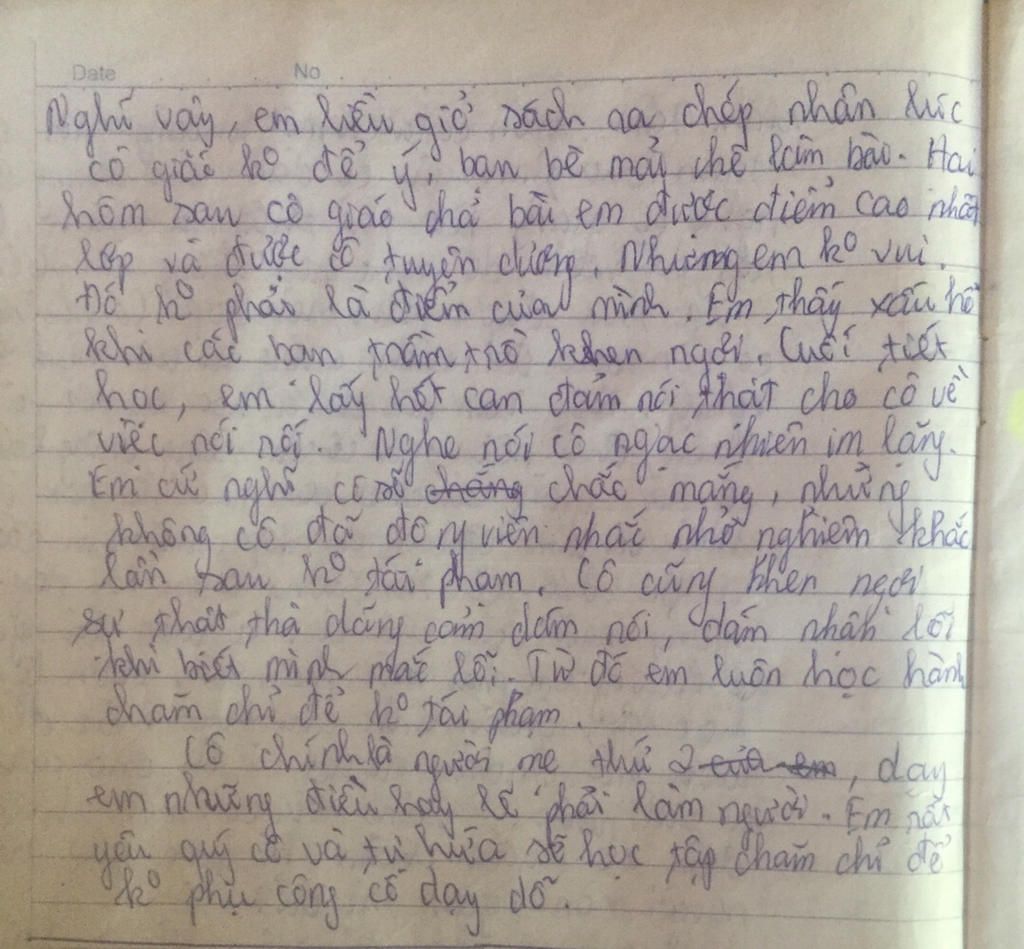 Date No
Nghĩ vậy, em liền giở sách ra chép nhân lúc
cô giáo k° để ý, bạn bè mải chế làm bài. Hai
hôm sau cô giáo chả bài em được điểm cao nhất
lớp và được cô tuyên dương. Nhưng em k° vui.
Đó k° phải là điểm của mình. Em thấy xấu hổ
khi các bạn trầm trồ khen ngợi. Cuối tiết
học, em lấy hết can đảm nói thật cho cô về
việc nói nối. Nghe nói cô ngạc nhiên im lặng.
Em cứ nghĩ cô sẽ chắc mắng, nhưng
không cô đã động viên nhắc nhở nghiêm khắc
lần sau k° tái phạm. Cô cũng khen ngợi
sự thật thà dũng cảm dám nói, dám nhận lỗi
khi biết mình mắc lỗi. Từ đó em luôn học hành
chăm chỉ để k° tái phạm.
Cô chính là người mẹ thứ 2 của em, dạy
em những điều hay lẽ phải làm người. Em rất
yêu quý cô và tự hứa sẽ học tập chăm chỉ để
k° phụ công cô dạy dỗ.